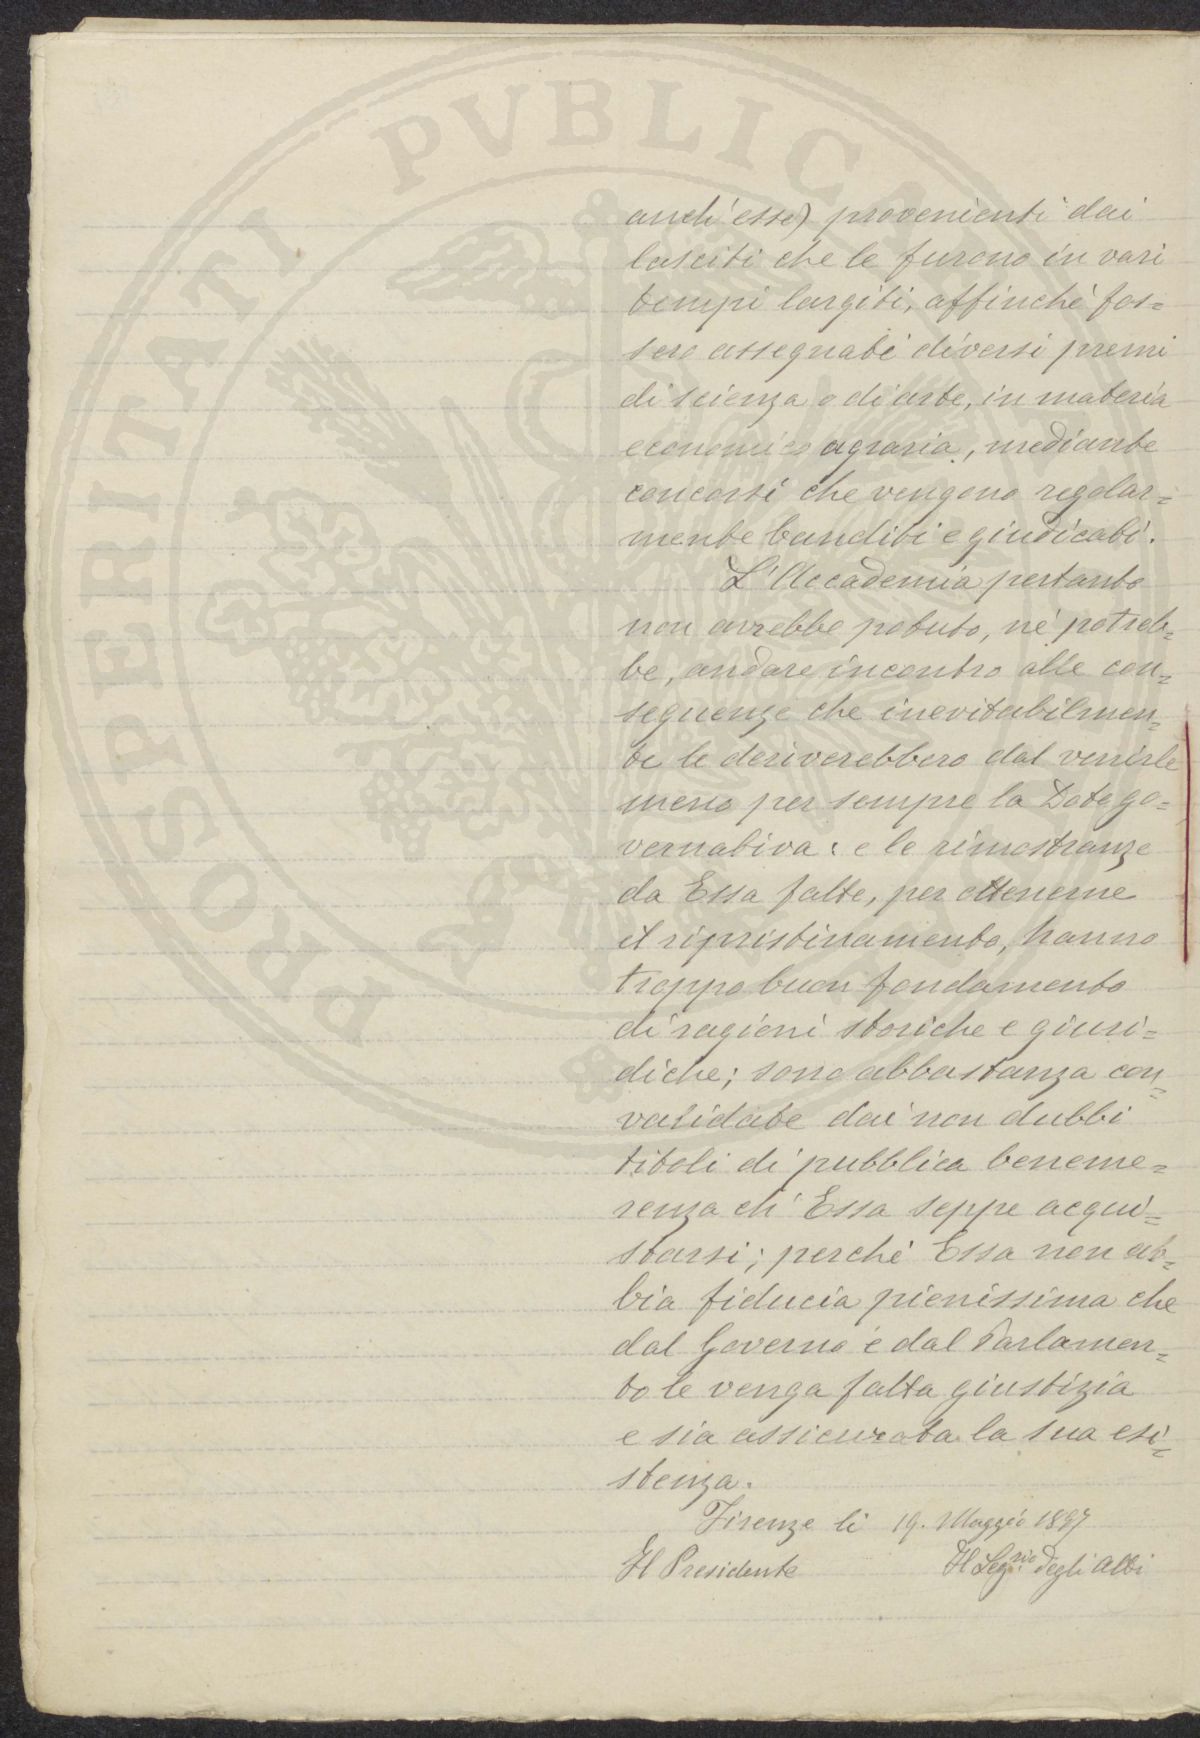 PROSPERITATI PVBLICA
anch'esse) provenienti dai
lasciti che le furono in vari
tempi largiti, affinché fos=
sero assegnati diversi premi
di scienza o di arte, in materia
economico agraria, mediante
concorsi che vengono regolar=
mente banditi e giudicati.
L'Accademia pertanto
non avrebbe potuto, né potreb=
be, andare incontro alle con=
seguenze che inevitabilmen=
te le deriverebbero dal venirle
meno per sempre la Dote go=
vernativa: e le rimostranze
da Essa fatte, per ottenerne
il ripristinamento, hanno
troppo buon fondamento
di ragioni storiche e giuri=
diche; sono abbastanza con=
validate dai non dubbi
titoli di pubblica beneme=
renza ch'Essa seppe acqui=
starsi; perché Essa non ab=
bia fiducia pienissima che
dal Governo e dal Parlamen=
to le venga fatta giustizia
e sia assicurata la sua esi=
stenza.
Firenze li 19. Maggio 1897
Il Presidente Il Seg.rio degli Atti